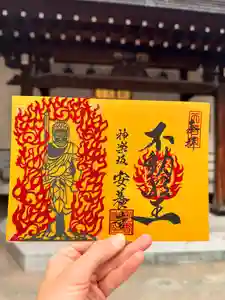 奉拝
不動明王
神楽坂
安養寺